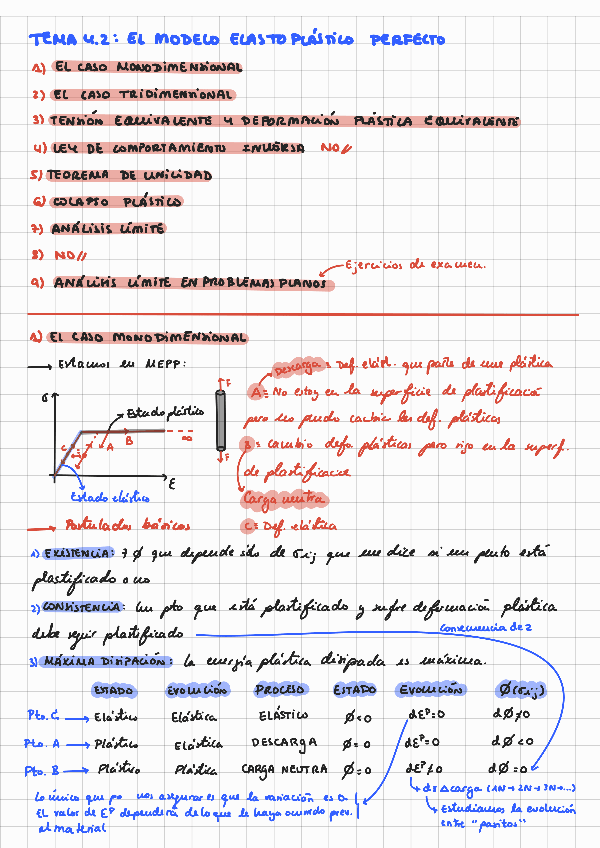 TEMA 4.2: EL MODELO ELASTOPLÁSTICO PERFECTO
1) EL CASO MONODIMENSIONAL
2) EL CASO TRIDIMENSIONAL
3) TENSIÓN EQUIVALENTE Y DEFORMACIÓN PLÁSTICA EQUIVALENTE
4) LEY DE COMPORTAMIENTO INVERSA NO//
5) TEOREMA DE UNICIDAD
6) COLAPSO PLÁSTICO
7) ANÁLISIS LÍMITE
8) NO//
9) ANÁLISIS LÍMITE EN PROBLEMAS PLANOS
Ejercicios de examen.
1) EL CASO MONODIMENSIONAL
→ Estamos en MEPP:
σ
Estado plástico
∞
C
A
B
ε
Estado elástico
F
F
Descarga: Def. elást. que parte de una plástica
A = No estoy en la superficie de plastificación
pero no puedo cambiar las def. plásticas
B = cambio defo plásticas pero sijo en la superf.
de plastificacion
Carga neutra
C = Def. elástica
→ Postulados básicos
1) EXISTENCIA: ∃ ∅ que depende sólo de σij que me dice si un punto está
plastificado o no
2) CONSISTENCIA: Un pto que está plastificado y sufre deformación plástica
debe seguir plastificado
Consecuencia de 2
3) MÁXIMA DISIPACIÓN: la energía plástica disipada es máxima.
ESTADO EVOLUCIÓN PROCESO ESTADO EVOLUCIÓN ∅(σij)
Pto. C → Elástico Elástica ELÁSTICO ∅<0 dεᴾ=0 d∅≠0
Pto. A → Plástico Elástica DESCARGA ∅=0 dεᴾ=0 d∅<0
Pto. B → Plástico Plástica CARGA NEUTRA ∅=0 dεᴾ≠0 d∅=0
Lo único que po nos asegurar es que la variación es 0.
El valor de εᴾ dependerá de lo que le haya ocurrido prev.
al material
d = Δcarga (1N→2N→3N→...)
Estudiamos la evolución
entre "pasitos"